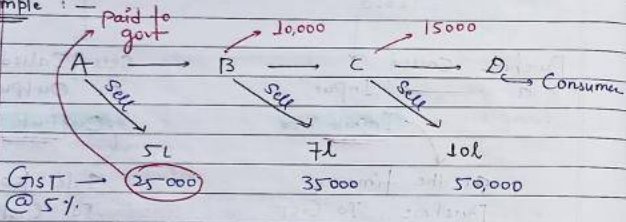 mple : —
paid to govt → 10,000 → 15000
A → B → C → D → Consumer
Sell Sell Sell
5L 7l 10l
GIST → 25000 35000 50,000
@ 5%.